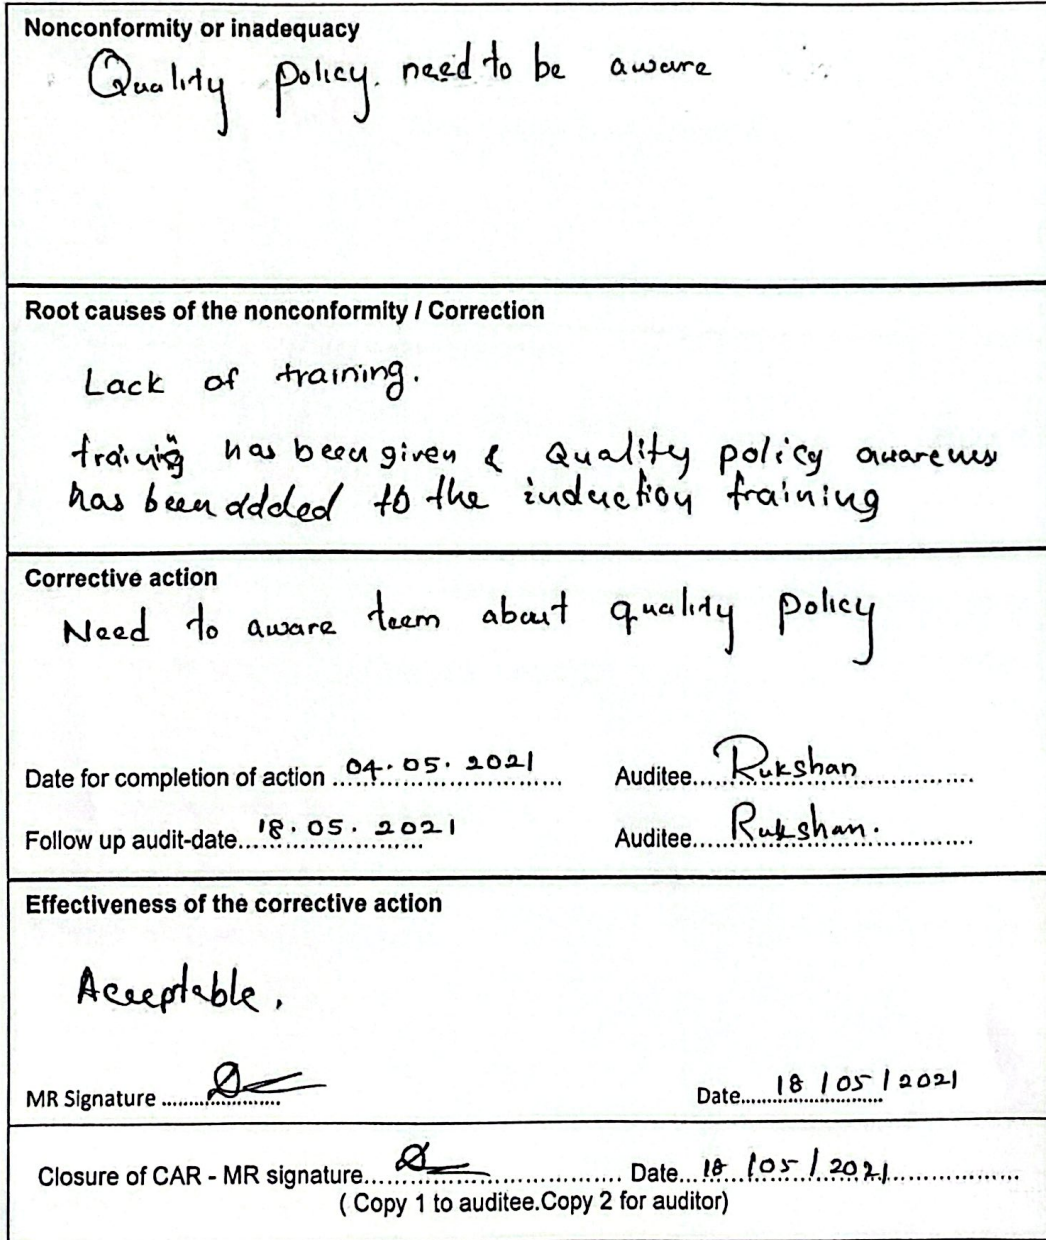 Nonconformity or inadequacy
Quality policy. need to be aware
Root causes of the nonconformity / Correction
Lack of training.
training has been given & Quality policy awareness
has been added to the induction training
Corrective action
Need to aware team about quality policy
Date for completion of action 04.05.2021 Auditee Rukshan
Follow up audit-date 18.05.2021 Auditee Rukshan.
Effectiveness of the corrective action
Acceptable.
MR Signature Date 18/05/2021
Closure of CAR - MR signature Date 18/05/2021
( Copy 1 to auditee.Copy 2 for auditor)